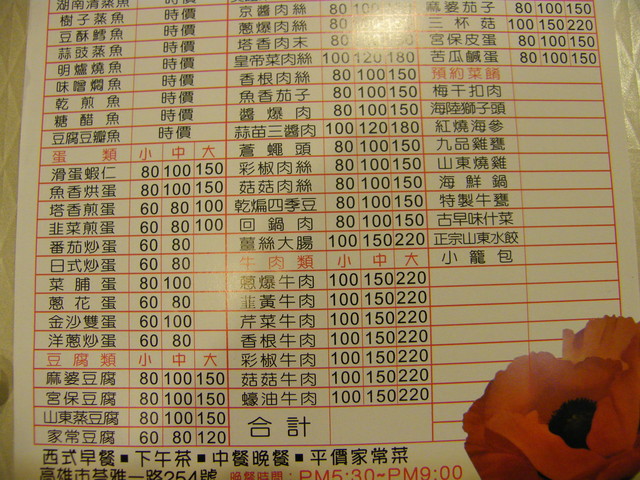 湖南清蒸魚 時價
樹子蒸魚 時價
豆酥鱈魚 時價
蒜豉蒸魚 時價
明爐燒魚 時價
味噌燜魚 時價
乾煎魚 時價
糖醋魚 時價
豆腐豆瓣魚 時價
蛋類 小 中 大
滑蛋蝦仁 80 100 150
魚香烘蛋 80 100 150
塔香煎蛋 60 80 100
韭菜煎蛋 60 80 100
番茄炒蛋 60 80
日式炒蛋 60 80
菜脯蛋 80 100
蔥花蛋 60 80
金沙雙蛋 60 100
洋蔥炒蛋 60 80
豆腐類 小 中 大
麻婆豆腐 80 100 150
宮保豆腐 80 100 150
山東蒸豆腐 80 100 150
家常豆腐 60 80 120
京醬肉絲 80 100 150
蔥爆肉絲 80 100 150
塔香肉末 80 100 150
皇帝菜肉絲 100 120 180
香根肉絲 80 100 150
魚香茄子 80 100 150
醬爆肉 80 100 150
蒜苗三醬肉 100 120 180
蒼蠅頭 80 100 150
彩椒肉絲 80 100 150
菇菇肉絲 80 100 150
乾煸四季豆 80 100 150
回鍋肉 80 100 150
薑絲大腸 100 150 220
牛肉類 小 中 大
蔥爆牛肉 100 150 220
韭黃牛肉 100 150 220
芹菜牛肉 100 150 220
香根牛肉 100 150 220
彩椒牛肉 100 150 220
菇菇牛肉 100 150 220
蠔油牛肉 100 150 220
合計
麻婆茄子 80 100 150
三杯菇 100 150 220
宮保皮蛋 80 100 150
苦瓜鹹蛋 80 100 150
預約菜餚
梅干扣肉
海陸獅子頭
紅燒海參
九品雞甕
山東燒雞
海鮮鍋
特製牛甕
古早味什菜
正宗山東水餃
小籠包
西式早餐■下午茶■中餐晚餐■平價家常菜
高雄市苓雅一路254號 晚餐時間：PM5:30~PM9:00